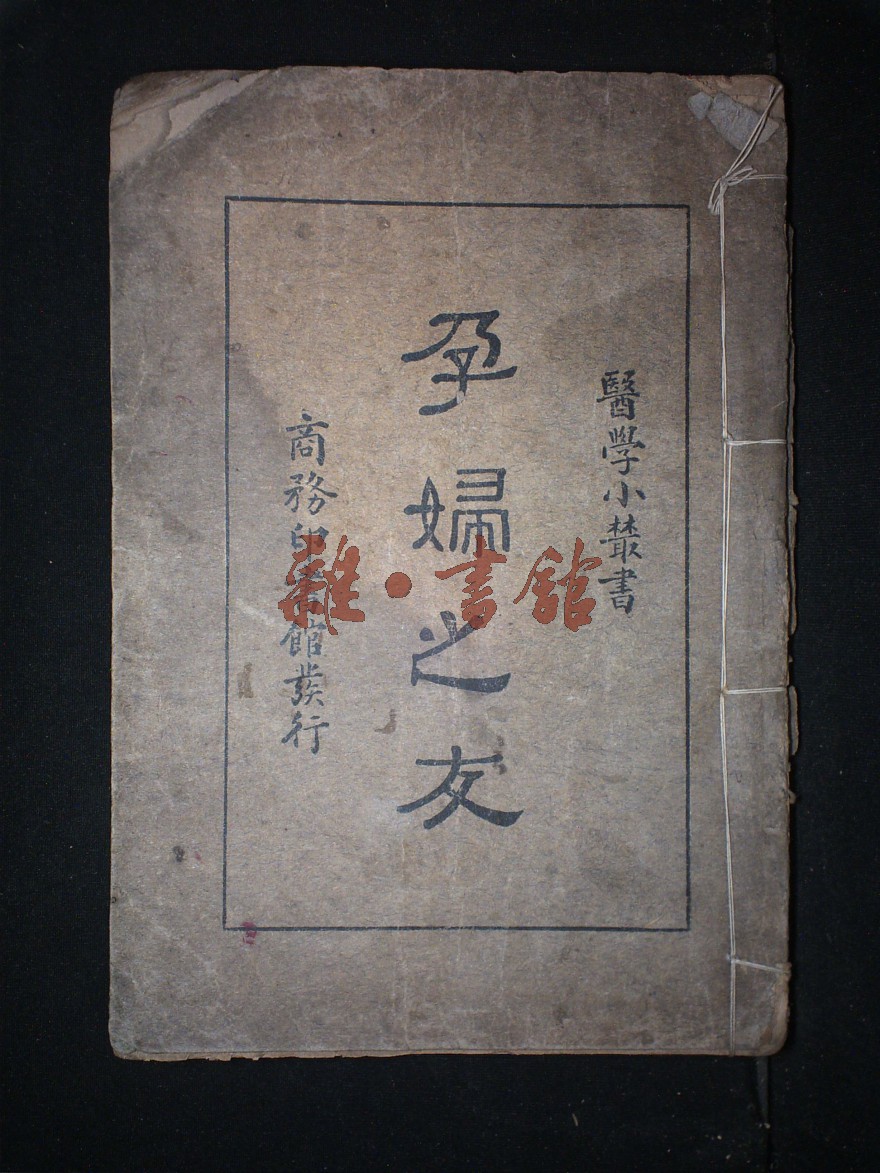 醫學小叢書
孕婦之友
商務印書館發行
雜·書館